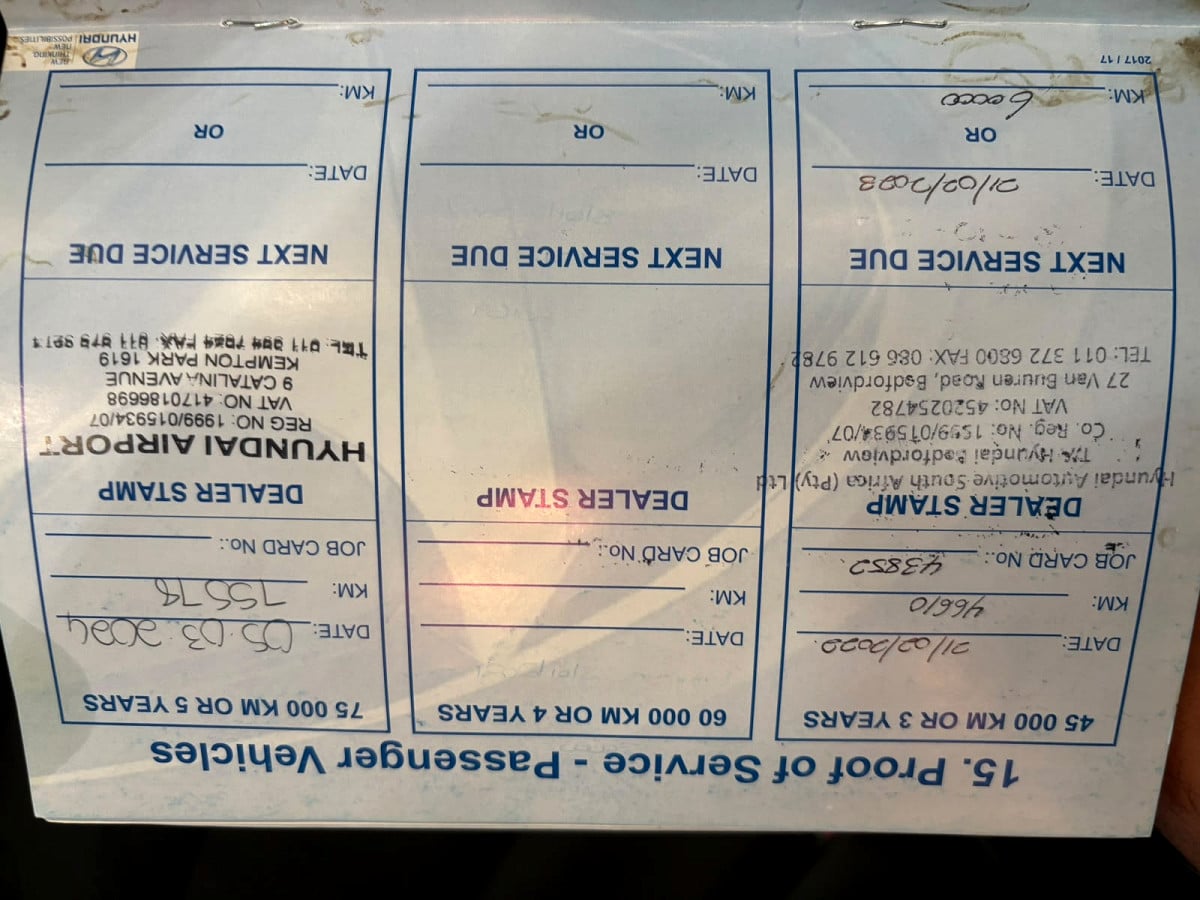 15. Proof of Service - Passenger Vehicles
45 000 KM OR 3 YEARS
DATE: 21/02/2022
KM: 46610
JOB CARD No.: 43852
DEALER STAMP
Hyundai Automotive South Africa (Pty) Ltd
T/A Hyundai Bedfordview
Co. Reg. No: 1999/015934/07
VAT No: 4520254782
27 Van Buuren Road, Bedfordview
TEL: 011 372 6800 FAX: 086 612 9782
NEXT SERVICE DUE
DATE: 21/02/2023
OR
KM: 60000
2017 / 17
60 000 KM OR 4 YEARS
DATE:
KM:
JOB CARD No.:
DEALER STAMP
NEXT SERVICE DUE
DATE:
OR
KM:
75 000 KM OR 5 YEARS
DATE: 05.03.2024
KM: 75578
JOB CARD No.:
DEALER STAMP
HYUNDAI AIRPORT
REG NO: 1999/015934/07
VAT NO: 4170186698
9 CATALINA AVENUE
KEMPTON PARK 1619
TEL: 011 394 7024 FAX: 011
NEXT SERVICE DUE
DATE:
OR
KM:
HYUNDAI
NEW THINKING.
NEW POSSIBILITIES.